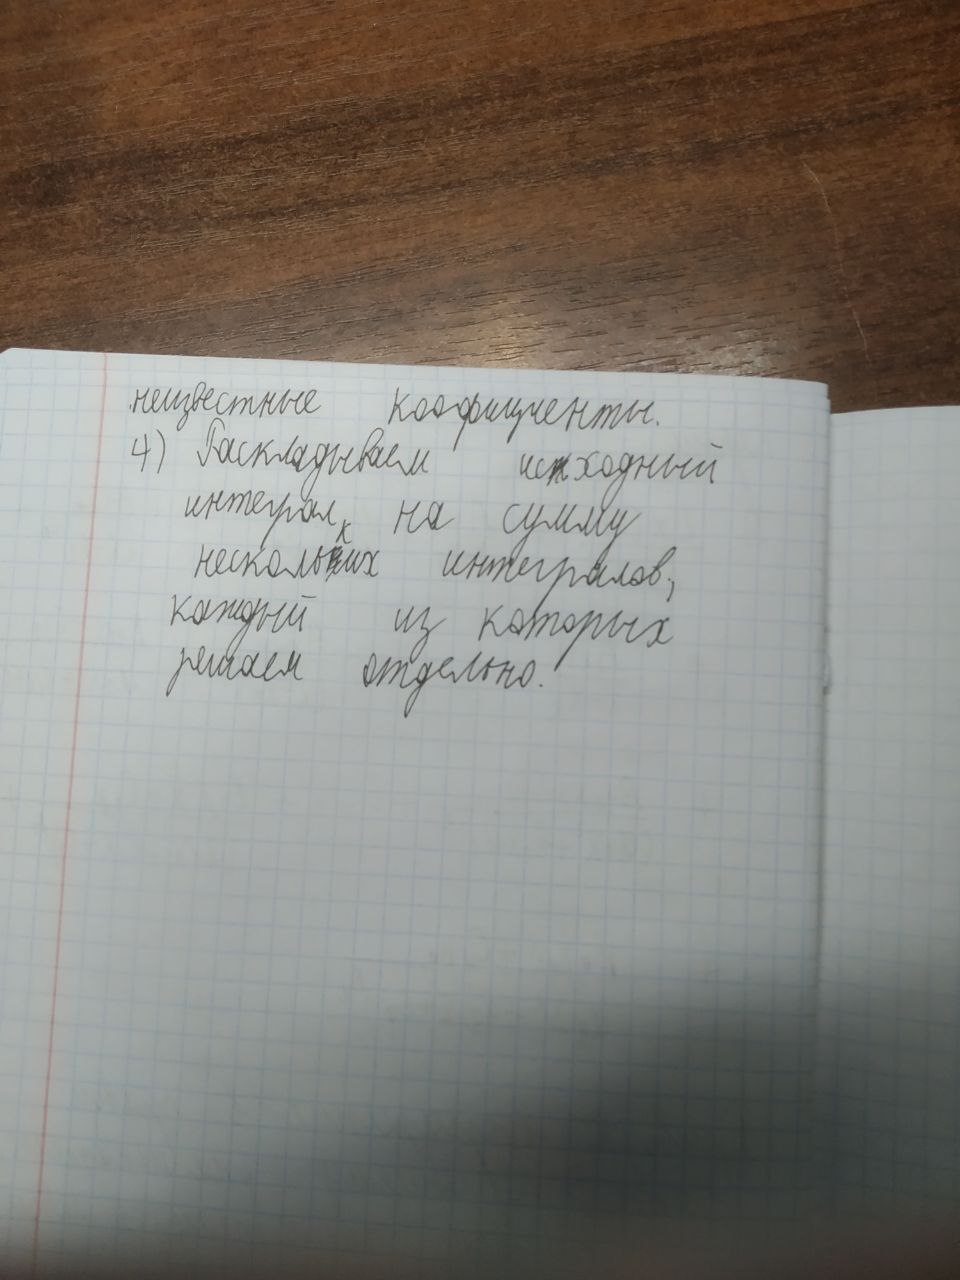 неизвестные коофициенты.
4) Раскладываем исходный
интеграл на сумму
нескольких интегралов,
каждый из которых
решаем отдельно.